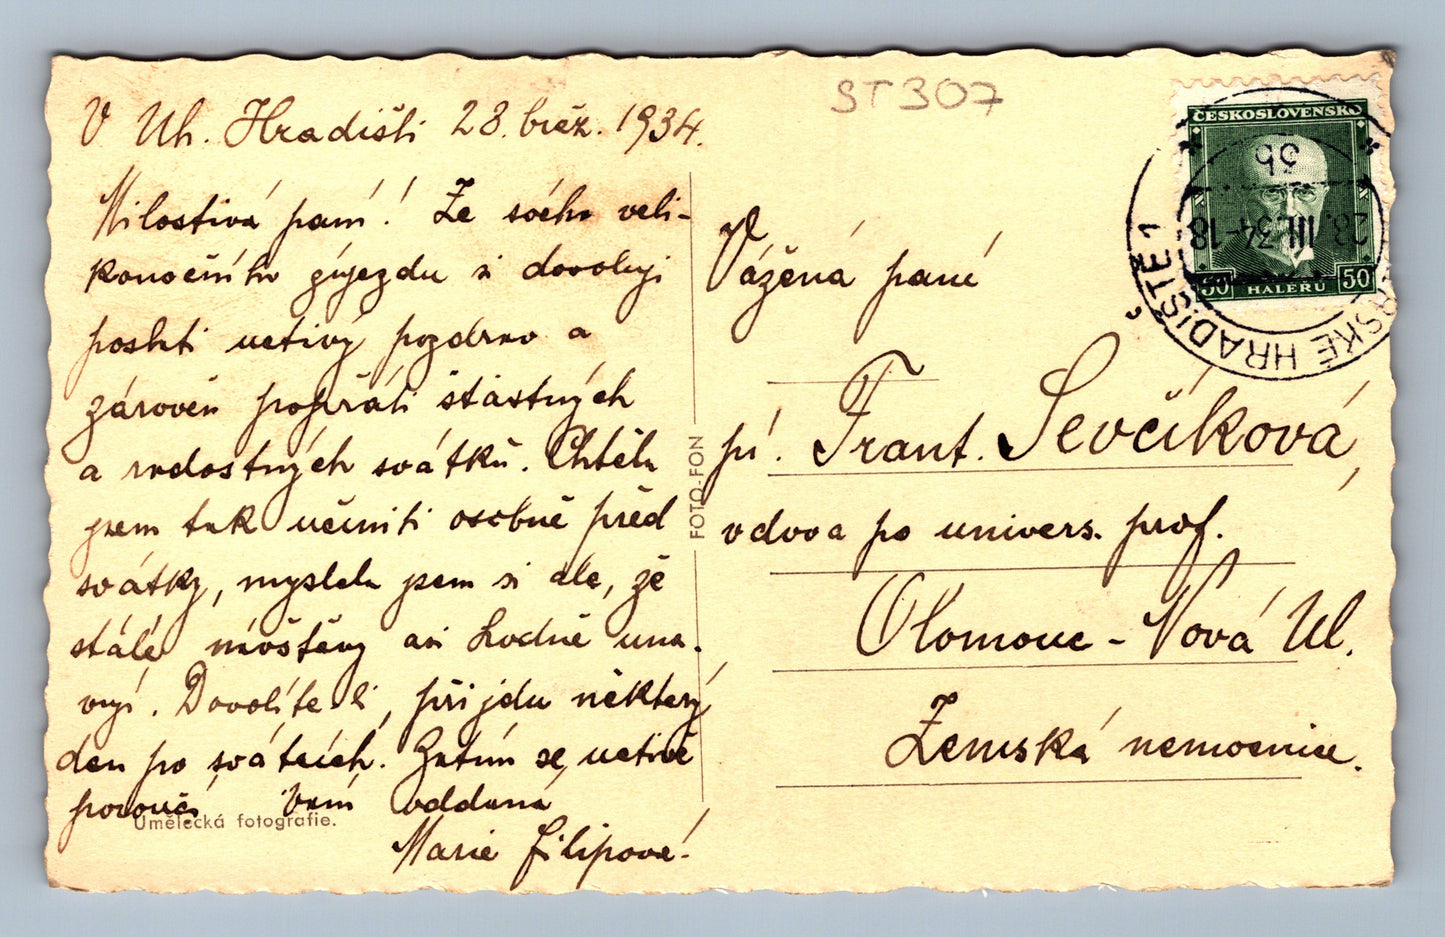 ST 307
V Uh. Hradišti 28. břez. 1934.
Milostivá paní! Ze svého veli-
konočního zájezdu si dovoluji
poslati uctivý pozdrav a
zároveň popřáti šťastných
a radostných svátků. Chtěla
jsem tak učiniti osobně před
svátky, myslela jsem si ale, že
stálé návštěvy asi hodně una-
vují. Dovolíte-li, přijdu některý
den po svátcích. Zatím se uctivě
poroučí Vám oddaná
Marie Filipová.
Umělecká fotografie.
FOTO-FON
Vážená paní
pí. Frant. Ševčíková,
vdova po univers. prof.
Olomouc - Nová Ul.
Zemská nemocnice.
ČESKOSLOVENSKO
50 HALÉŘŮ 50
HRADIŠTĚ 1
28.III.34-18
3b